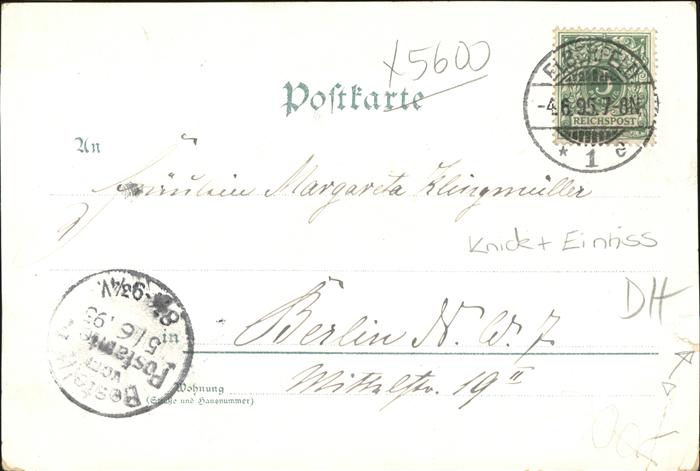 x5600
Postkarte
ELBERFELD
-4.6.95.7-8N.
* 1 c
5
REICHSPOST
An
Fräulein Margareta Klingmüller
Knick + Einriss
DH
in Berlin N. W. 7
Wohnung
(Straße und Hausnummer)
Mittelstr. 19 II
Bestellt
vom
Postamte
5/6.95
8¼-9¾V.